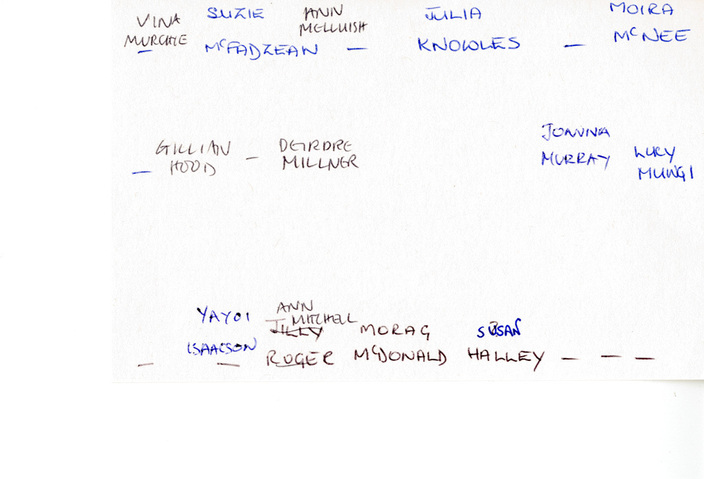 VINA SUZIE ANN JULIA MOIRA
MURCHIE McFADZEAN MELLUISH — KNOWLES — McNEE
GILLIAN DEIRDRE JONVINA
— HOOD — MILLNER MURRAY LUCY
MUNGI
ANN
YAYOI J. MITCHELL
JILLY MORAG SUSAN
— ISAACSON — ROGER McDONALD HALLEY — — —